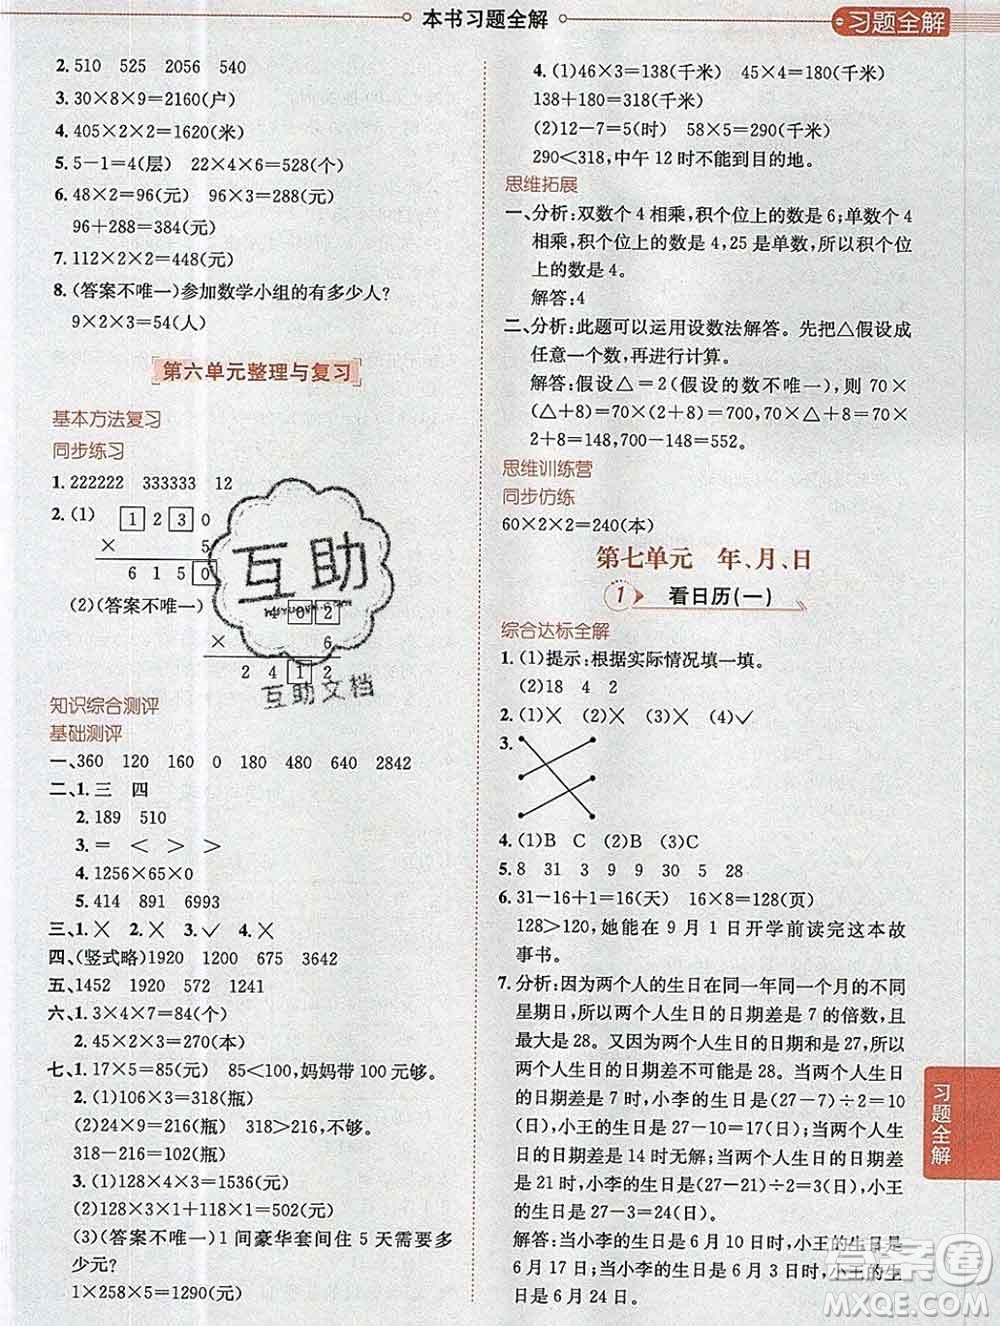 本书习题全解
习题全解
2. 510 525 2056 540
3. 30×8×9=2160(户)
4. 405×2×2=1620(米)
5. 5-1=4(层) 22×4×6=528(个)
6. 48×2=96(元) 96×3=288(元)
96+288=384(元)
7. 112×2×2=448(元)
8. (答案不唯一)参加数学小组的有多少人?
9×2×3=54(人)
第六单元整理与复习
基本方法复习
同步练习
1. 222222 333333 12
2. (1) 1 2 3 0
× 5
6 1 5 0
(2)(答案不唯一)
4 0 2
× 6
2 4 1 2
知识综合测评
基础测评
一、360 120 160 0 180 480 640 2842
二、1. 三 四
2. 189 510
3. = < > >
4. 1256×65×0
5. 414 891 6993
三、1. ✕ 2. ✕ 3. ✓ 4. ✕
四、(竖式略)1920 1200 675 3642
五、1452 1920 572 1241
六、1. 3×4×7=84(个)
2. 45×2×3=270(本)
七、1. 17×5=85(元) 85<100,妈妈带 100 元够。
2. (1)106×3=318(瓶)
(2)24×9=216(瓶) 318>216,不够。
318-216=102(瓶)
3. (1)128×4×3=1536(元)
(2)128×3×1+118×1=502(元)
(3)(答案不唯一)1 间豪华套间住 5 天需要多
少元?
1×258×5=1290(元)
4. (1)46×3=138(千米) 45×4=180(千米)
138+180=318(千米)
(2)12-7=5(时) 58×5=290(千米)
290<318,中午 12 时不能到目的地。
思维拓展
一、分析:双数个 4 相乘,积个位上的数是 6;单数个 4
相乘,积个位上的数是 4,25 是单数,所以积个位
上的数是 4。
解答:4
二、分析:此题可以运用设数法解答。先把△假设成
任意一个数,再进行计算。
解答:假设△=2(假设的数不唯一),则 70×
(△+8)=70×(2+8)=700,70×△+8=70×
2+8=148,700-148=552。
思维训练营
同步仿练
60×2×2=240(本)
第七单元 年、月、日
1 看日历(一)
综合达标全解
1. (1)提示:根据实际情况填一填。
(2)18 4 2
2. (1)✕ (2)✕ (3)✕ (4)✓
3.
4. (1)B C (2)B (3)C
5. 8 31 3 9 30 5 28
6. 31-16+1=16(天) 16×8=128(页)
128>120,她能在 9 月 1 日开学前读完这本故
事书。
7. 分析:因为两个人的生日在同一年同一个月的不同
星期日,所以两个人生日的日期差是 7 的倍数,且
最大是 28。又因为两个人生日的日期和是 27,所以
两个人生日的日期差不可能是 28。当两个人生
日的日期差是 7 时,小李的生日是(27-7)÷2=10
(日),小王的生日是 27-10=17(日);当两个人生
日的日期差是 14 时无解;当两个人生日的日期
差是 21 时,小李的生日是(27-21)÷2=3(日),小王
的生日是 27-3=24(日)。
解答:当小李的生日是 6 月 10 日时,小王的生日是
6 月 17 日;当小李的生日是 6 月 3 日时,小王的生
日是 6 月 24 日。
习题全解
互助
互助文档
答案圈
MXQE.COM